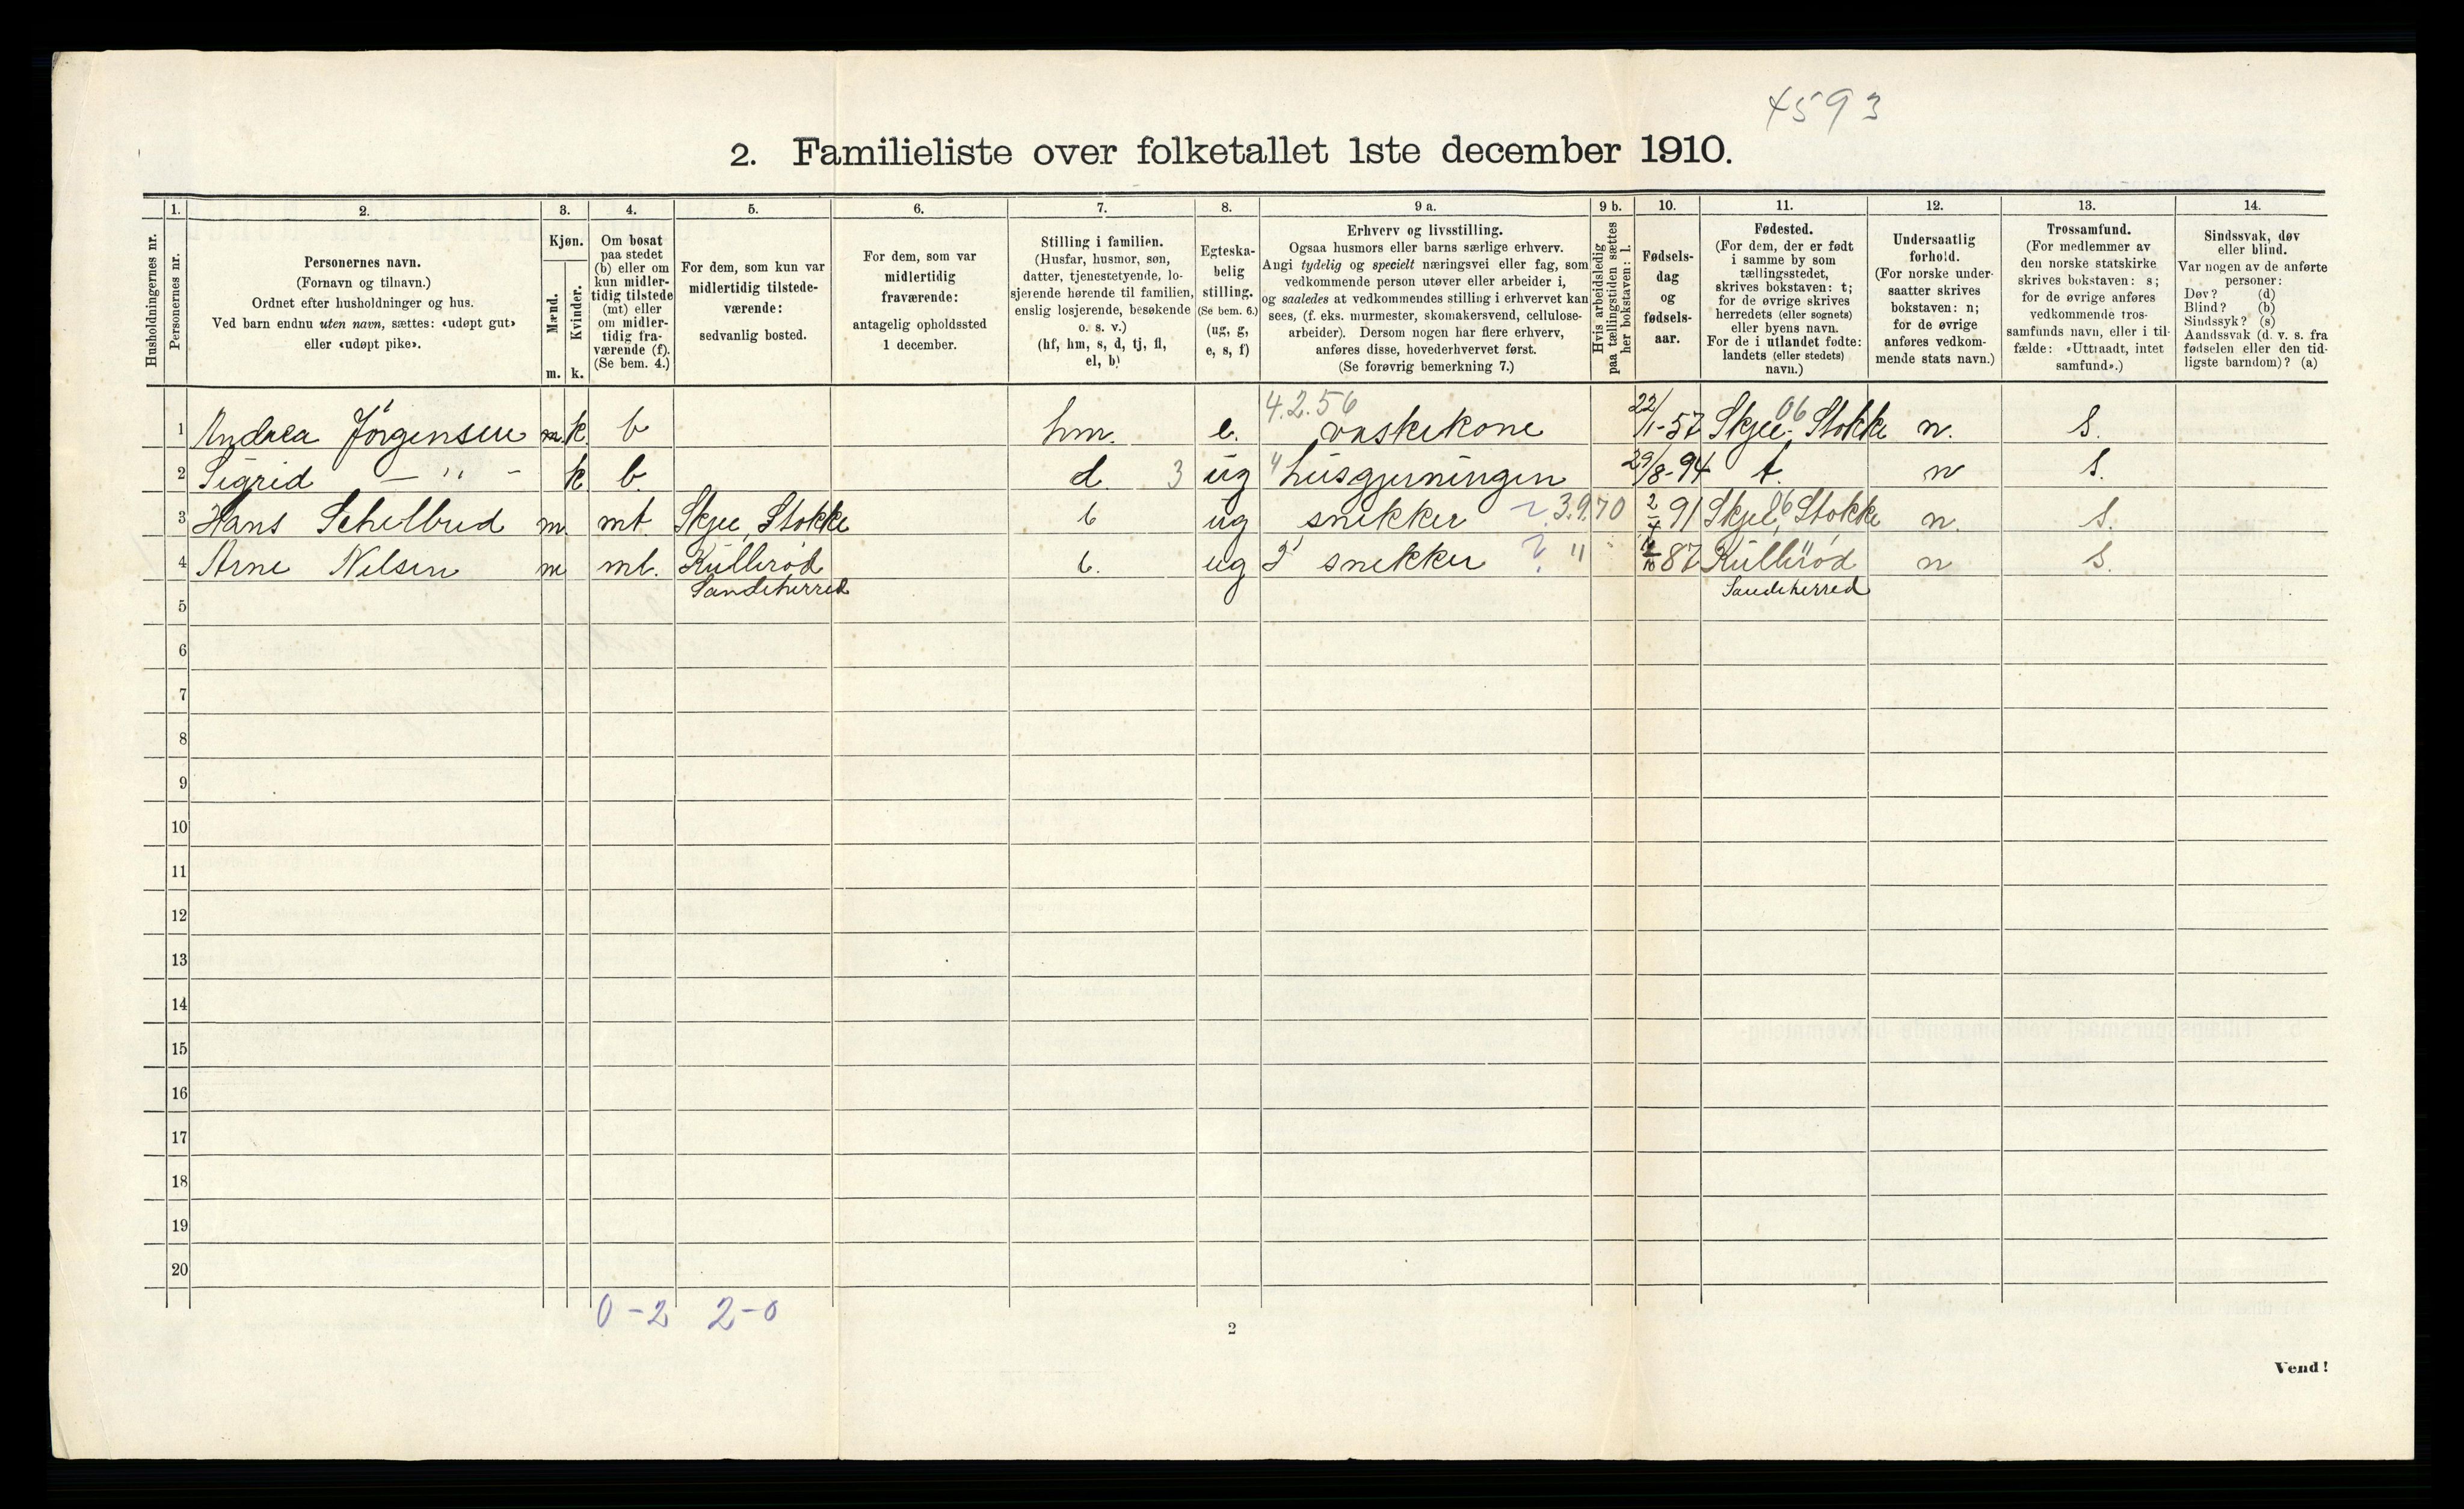 4593
2. Familieliste over folketallet 1ste december 1910.
Husholdningernes nr.
1.
Personernes nr.
2.
Personernes navn.
(Fornavn og tilnavn.)
Ordnet efter husholdninger og hus.
Ved barn endnu uten navn, sættes: «udøpt gut»
eller «udøpt pike».
3.
Kjøn.
Mænd.
Kvinder.
m. k.
4.
Om bosat
paa stedet
(b) eller om
kun midler-
tidig tilstede
(mt) eller
om midler-
tidig fra-
værende (f).
(Se bem. 4.)
5.
For dem, som kun var
midlertidig tilstede-
værende:
sedvanlig bosted.
6.
For dem, som var
midlertidig
fraværende:
antagelig opholdssted
1 december.
7.
Stilling i familien.
(Husfar, husmor, søn,
datter, tjenestetyende, lo-
sjerende hørende til familien,
enslig losjerende, besøkende
o. s. v.)
(hf, hm, s, d, tj, fl,
el, b)
8.
Egteska-
belig
stilling.
(Se bem. 6.)
(ug, g,
e, s, f)
9 a.
Erhverv og livsstilling.
Ogsaa husmors eller barns særlige erhverv.
Angi tydelig og specielt næringsvei eller fag, som
vedkommende person utøver eller arbeider i,
og saaledes at vedkommendes stilling i erhvervet kan
sees, (f. eks. murmester, skomakersvend, cellulose-
arbeider). Dersom nogen har flere erhverv,
anføres disse, hovederhvervet først.
(Se forøvrig bemerkning 7.)
9 b.
Hvis arbeidsledig
paa tællingstiden sættes
her bokstaven: l.
10.
Fødsels-
dag
og
fødsels-
aar.
11.
Fødested.
(For dem, der er født
i samme by som
tællingsstedet,
skrives bokstaven: t;
for de øvrige skrives
herredets (eller sognets)
eller byens navn.
For de i utlandet fødte:
landets (eller stedets)
navn.)
12.
Undersaatlig
forhold.
(For norske under-
saatter skrives
bokstaven: n;
for de øvrige
anføres vedkom-
mende stats navn.)
13.
Trossamfund.
(For medlemmer av
den norske statskirke
skrives bokstaven: s;
for de øvrige anføres
vedkommende tros-
samfunds navn, eller i til-
fælde: «Uttraadt, intet
samfund».)
14.
Sindssvak, døv
eller blind.
Var nogen av de anførte
personer:
Døv? (d)
Blind? (b)
Sindssyk? (s)
Aandssvak (d. v. s. fra
fødselen eller den tid-
ligste barndom)? (a)
4.2.56
1 Andrea Jörgensen m. k. b hm. e. vaskekone 22/1-57 Skjee, Stokke 06 n. S.
2 Sigrid — " - k b. d. 3 ug 4 husgjerningen 29/8-94 t. n S.
3 Hans Schelbred m. mt. Skjee, Stokke b ug snekker 3.9.70 2/4 91 Skjee, Stokke 06 n. S.
4 Arne Nilsen m mt. Kullerød b. ug snekker " 87 Kullerød n S.
Sandeherred Sandeherred
5
6
7
8
9
10
11
12
13
14
15
16
17
18
19
20
0-2 2-0
2
Vend!